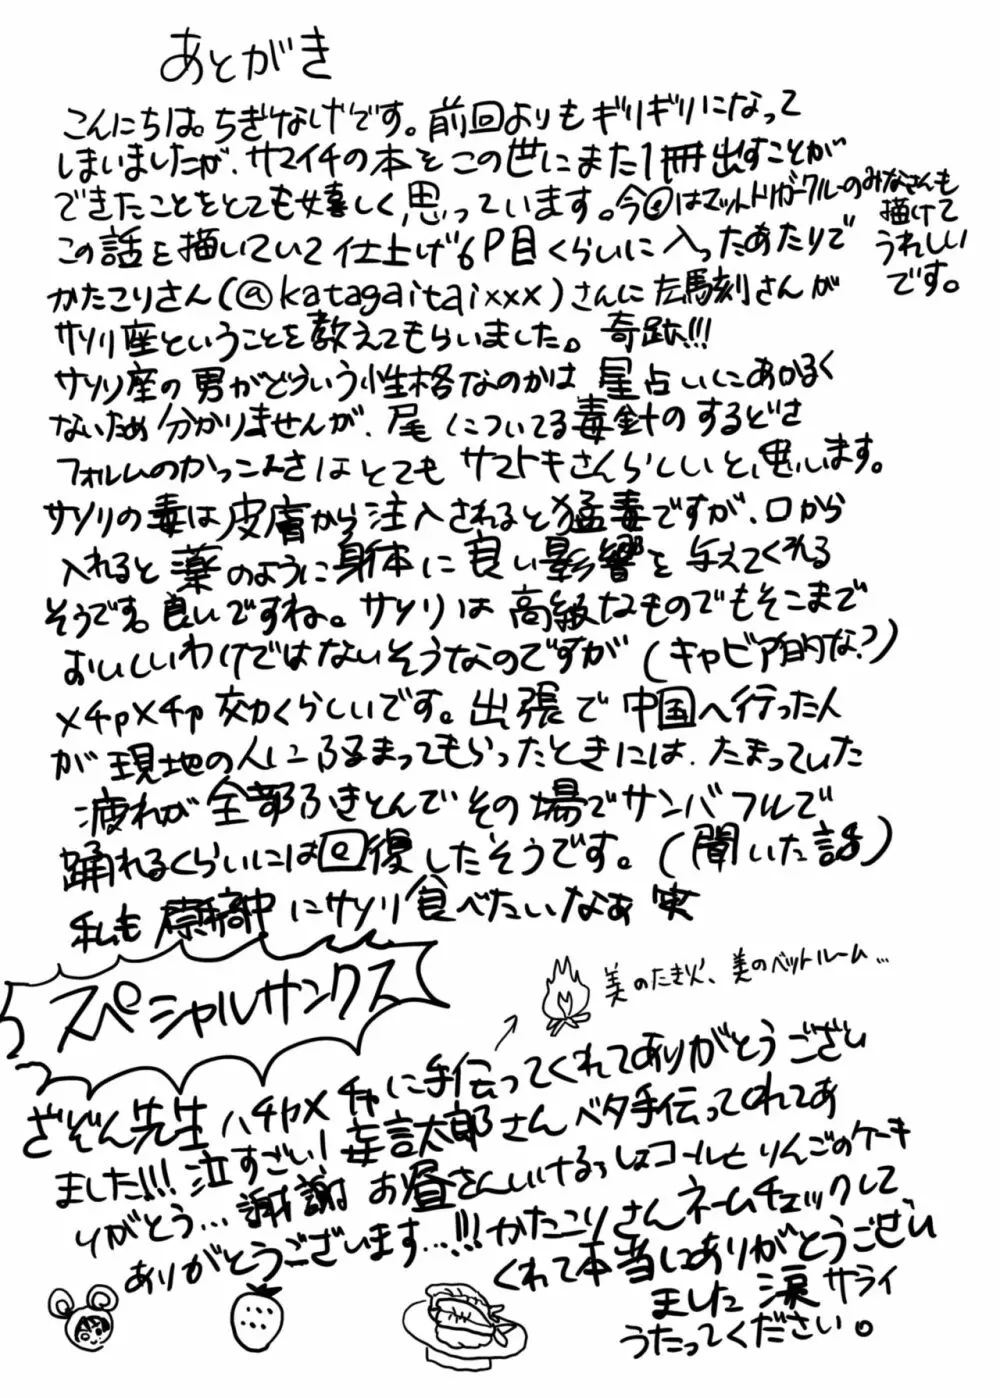 あとがき
こんにちは。ちぎなげです。前回よりもギリギリになって
しまいましたが、サマイチの本をこの世にまた1冊出すことが
できたことをとても嬉しく思っています。今回はマッドトリガークルーのみなさんも
描けて
うれしい
です。
この話を描いていて仕上げ6P目くらいに入ったあたりで
かたこりさん(@katagaitaixxx)さんに左馬刻さんが
サソリ座ということを教えてもらいました。奇跡!!!
サソリ座の男がどういう性格なのかは星占いにあかるく
ないため分かりませんが、尾についてる毒針のするどさ
フォルムのかっこよさはとてもサマトキさんらしいと思います。
サソリの毒は皮膚から注入されると猛毒ですが、口から
入れると薬のように身体に良い影響を与えてくれる
そうです。良いですね。サソリは高級なものでもそこまで
おいしいわけではないそうなのですが(キャビア的な?)
メチャメチャ効くらしいです。出張で中国へ行った人
が現地の人にふるまってもらったときには、たまっていた
疲れが全部ふきとんでその場でサンバフルで
踊れるくらいには回復したそうです。(聞いた話)
私も原稿中にサソリ食べたいなぁ 笑
スペシャルサンクス
美のたき火、美のベットルーム…
ざぞん先生ハチャメチャに手伝ってくれてありがとうござい
ました!!!泣すごい!妄言太郎さんベタ手伝ってくれてあ
りがとう…謝謝 お昼さんいけるっしょコールとりんごのケーキ
ありがとうございます…!!!かたこりさんネームチェックして
くれて本当にありがとうござい
ました 涙 サライ
うたってください。